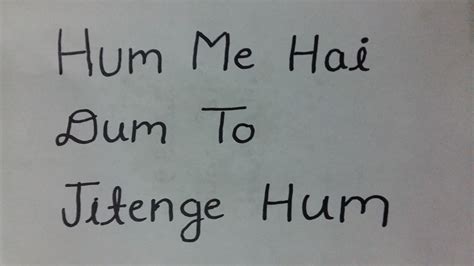 Hum Me Hai
Dum To
Jitenge Hum